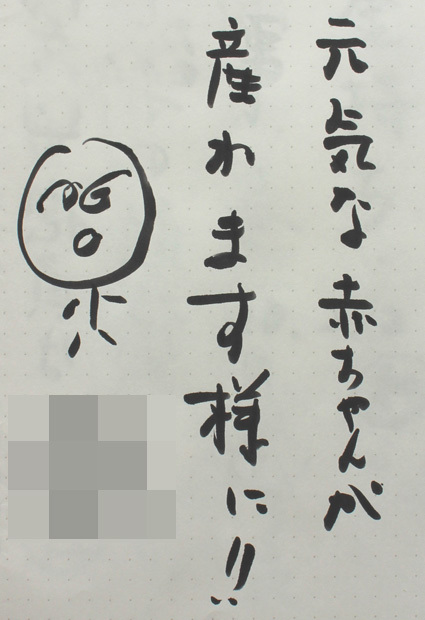 元気な赤ちゃんが
産れます様に!!